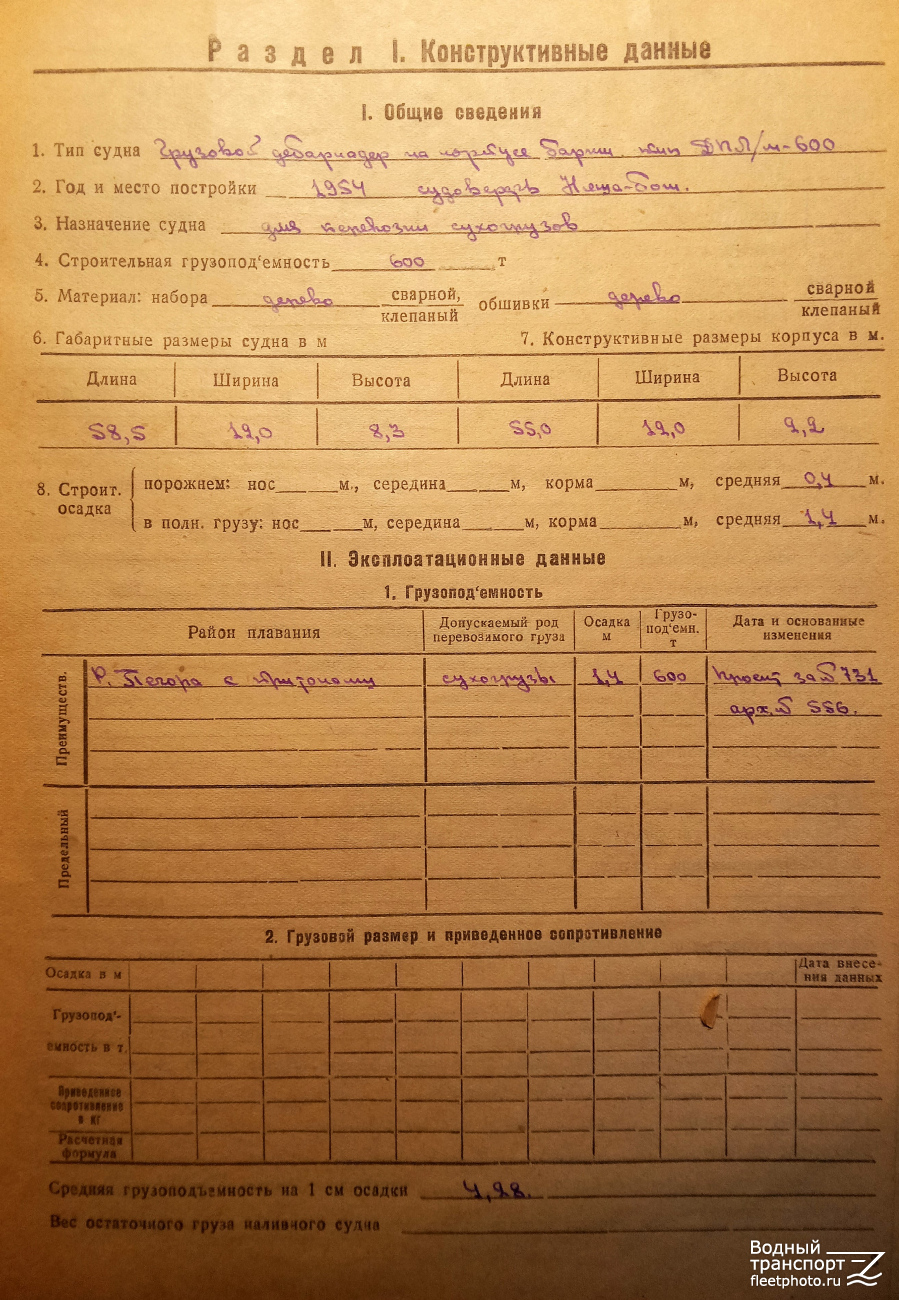 Раздел I. Конструктивные данные
I. Общие сведения
1. Тип судна Грузовой дебаркадер на корпусе баржи тип ДПЛ/м-600
2. Год и место постройки 1954 судоверфь Няша-Бож.
3. Назначение судна для перевозки сухогрузов
4. Строительная грузопод'емность 600 т
5. Материал: набора дерево сварной, клепаный обшивки дерево сварной клепаный
6. Габаритные размеры судна в м 7. Конструктивные размеры корпуса в м.
Длина Ширина Высота Длина Ширина Высота
58,5 12,0 8,3 55,0 12,0 2,2
8. Строит. осадка
порожнем: нос м., середина м, корма м, средняя 0,4 м.
в полн. грузу: нос м, середина м, корма м, средняя 1,4 м.
II. Эксплоатационные данные
1. Грузопод'емность
Район плавания Допускаемый род перевозимого груза Осадка м Грузо-под'емн. т Дата и основанные изменения
Преимуществ.
Р. Печора с притоками сухогрузы 1,4 600 Проект за № 731
арх. № 556.
Предельный
2. Грузовой размер и приведенное сопротивление
Осадка в м Дата внесе-
ния данных
Грузопод'-
емность в т.
Приведенное
сопротивление
в кг
Расчетная
формула
Средняя грузоподъемность на 1 см осадки 4,28.
Вес остаточного груза наливного судна
Водный
транспорт
fleetphoto.ru